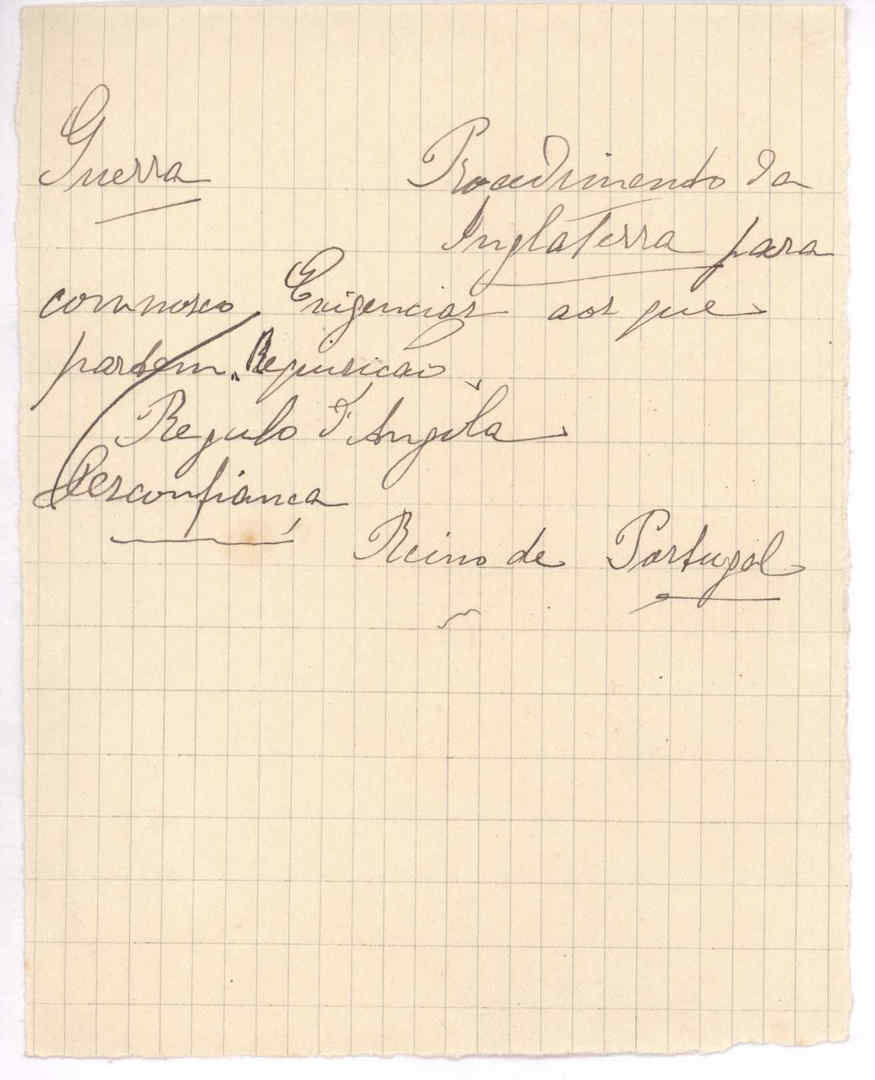 Guerra Procedimento da
Inglaterra para
comnosco. Exigencias aos que
partem. Requisicão
Regulo d'Angola
Desconfiança
Reino de Portugal